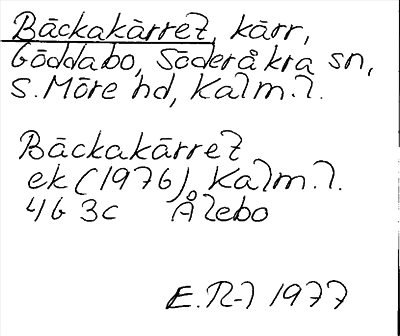 Bäckakärret, kärr,
Göddabo, Söderåkra sn,
S. Möre hd, Kalm. l.
Bäckakärret
ek (1976), Kalm. l.
4G 3c Ålebo
E. R-l 1977